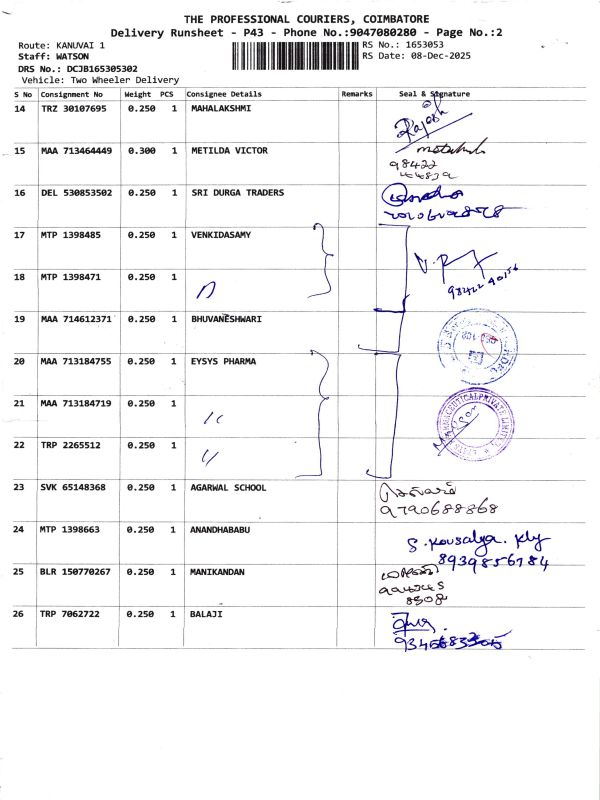 THE PROFESSIONAL COURIERS, COIMBATORE
Delivery Runsheet - P43 - Phone No.:9047080280 - Page No.:2
Route: KANUVAI 1
RS No.: 1653053
Staff: WATSON
RS Date: 08-Dec-2025
DRS No.: DCJB165305302
Vehicle: Two Wheeler Delivery
S No Consignment No Weight PCS Consignee Details Remarks Seal & Signature
14 TRZ 30107695 0.250 1 MAHALAKSHMI
Rajesh
15 MAA 713464449 0.300 1 METILDA VICTOR
98422
16 DEL 530853502 0.250 1 SRI DURGA TRADERS
17 MTP 1398485 0.250 1 VENKIDASAMY
18 MTP 1398471 0.250 1
98422 40156
19 MAA 714612371 0.250 1 BHUVANESHWARI
20 MAA 713184755 0.250 1 EYSYS PHARMA
21 MAA 713184719 0.250 1
22 TRP 2265512 0.250 1
23 SVK 65148368 0.250 1 AGARWAL SCHOOL
9790688868
24 MTP 1398663 0.250 1 ANANDHABABU
S. Kousalya. Kly
8939856784
25 BLR 150770267 0.250 1 MANIKANDAN
26 TRP 7062722 0.250 1 BALAJI